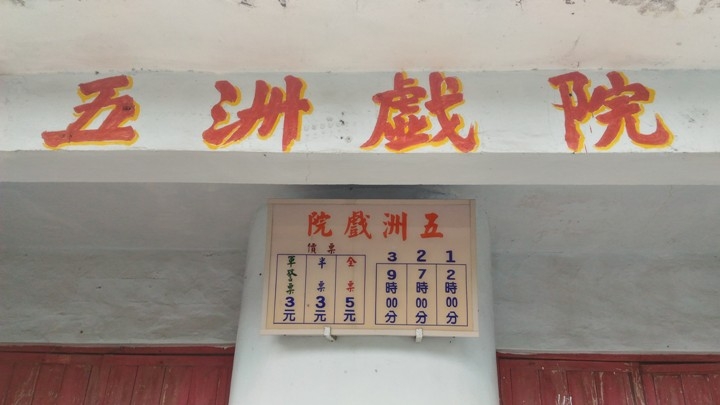 五洲戯院
五洲戲院
1 2時00分
2 7時00分
3 9時00分
票價
全票5元
半票3元
軍警票3元